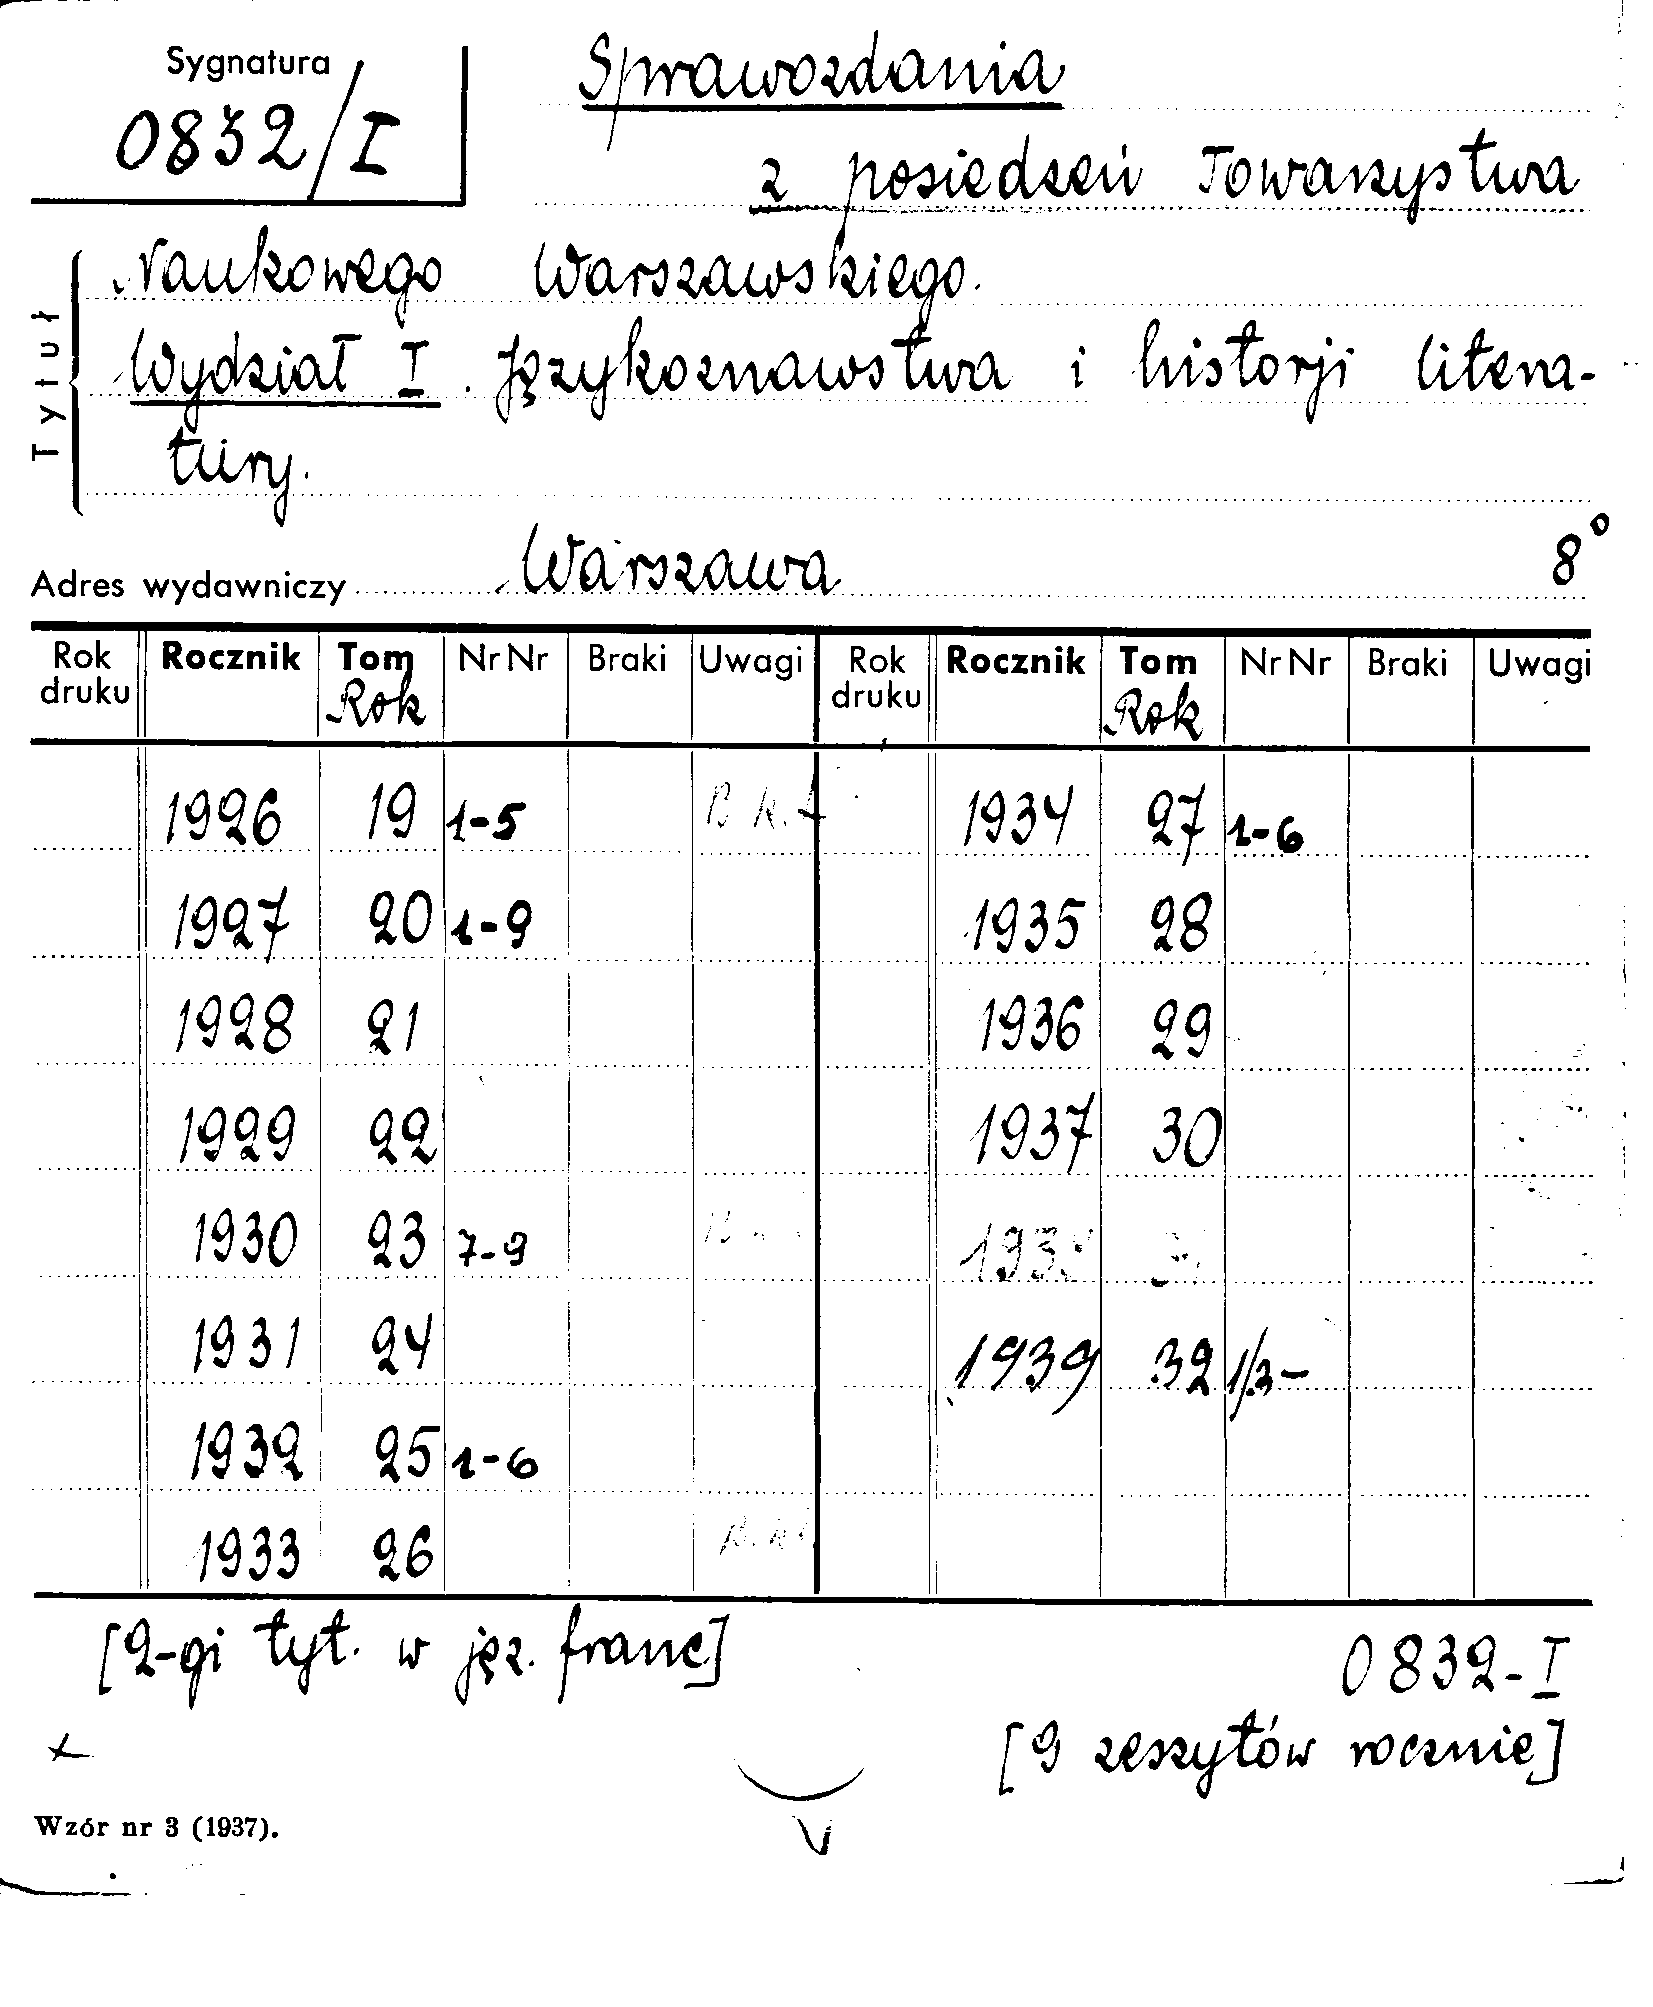 Sygnatura
0832/I
Sprawozdania
z posiedzeń Towarzystwa
Naukowego Warszawskiego.
Wydział I. Językoznawstwa i historji litera-
tury.
Tytuł
8°
Adres wydawniczy Warszawa
Rok druku Rocznik Tom Rok NrNr Braki Uwagi Rok druku Rocznik Tom Rok NrNr Braki Uwagi
1926 19 1-5 1934 27 1-6
1927 20 1-9 1935 28
1928 21 1936 29
1929 22 1937 30
1930 23 7-9
1931 24 1939 32 1/3-
1932 25 1-6
1933 26
[2-gi tyt. w jęz. franc]
0832-I
[9 zeszytów rocznie]
Wzór nr 3 (1937).